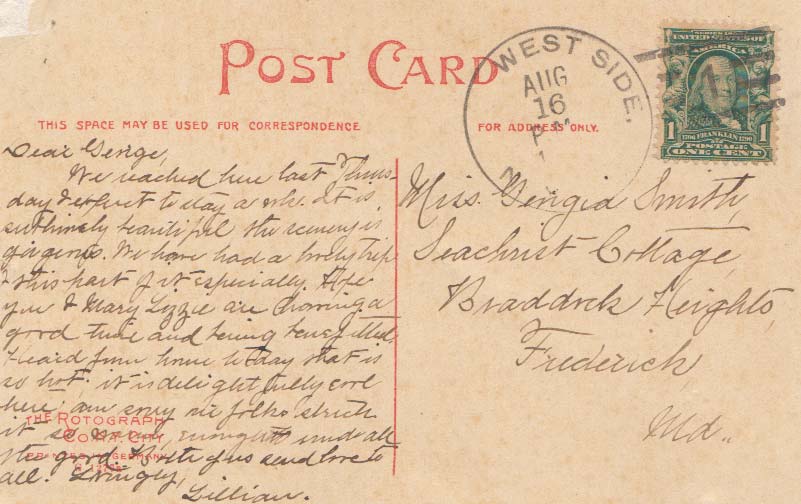 POST CARD
THIS SPACE MAY BE USED FOR CORRESPONDENCE
FOR ADDRESS ONLY.
WEST SIDE.
AUG
16
P M
N
SERIES 1902
UNITED STATES OF
AMERICA
1
1706 FRANKLIN 1790
1
POSTAGE
ONE CENT
Dear George,
We reached here last Thurs-
day & expect to stay a wk. It is
sublimely beautiful the scenery is
gorgeous. We have had a lovely trip
& this part of it especially. Hope
you & Mary Lizzie are having a
good time and being benefitted
Heard from home today that is
so hot; it is delightfully cool
here; am sorry
it so
the good. Both of us send love to
all. Lovingly,
Lillian.
Miss. Georgia Smith,
Seachrist Cottage,
Braddock Heights,
Frederick
Md.
THE ROTOGRAPH
CO., N.Y. CITY
PRINTED IN GERMANY